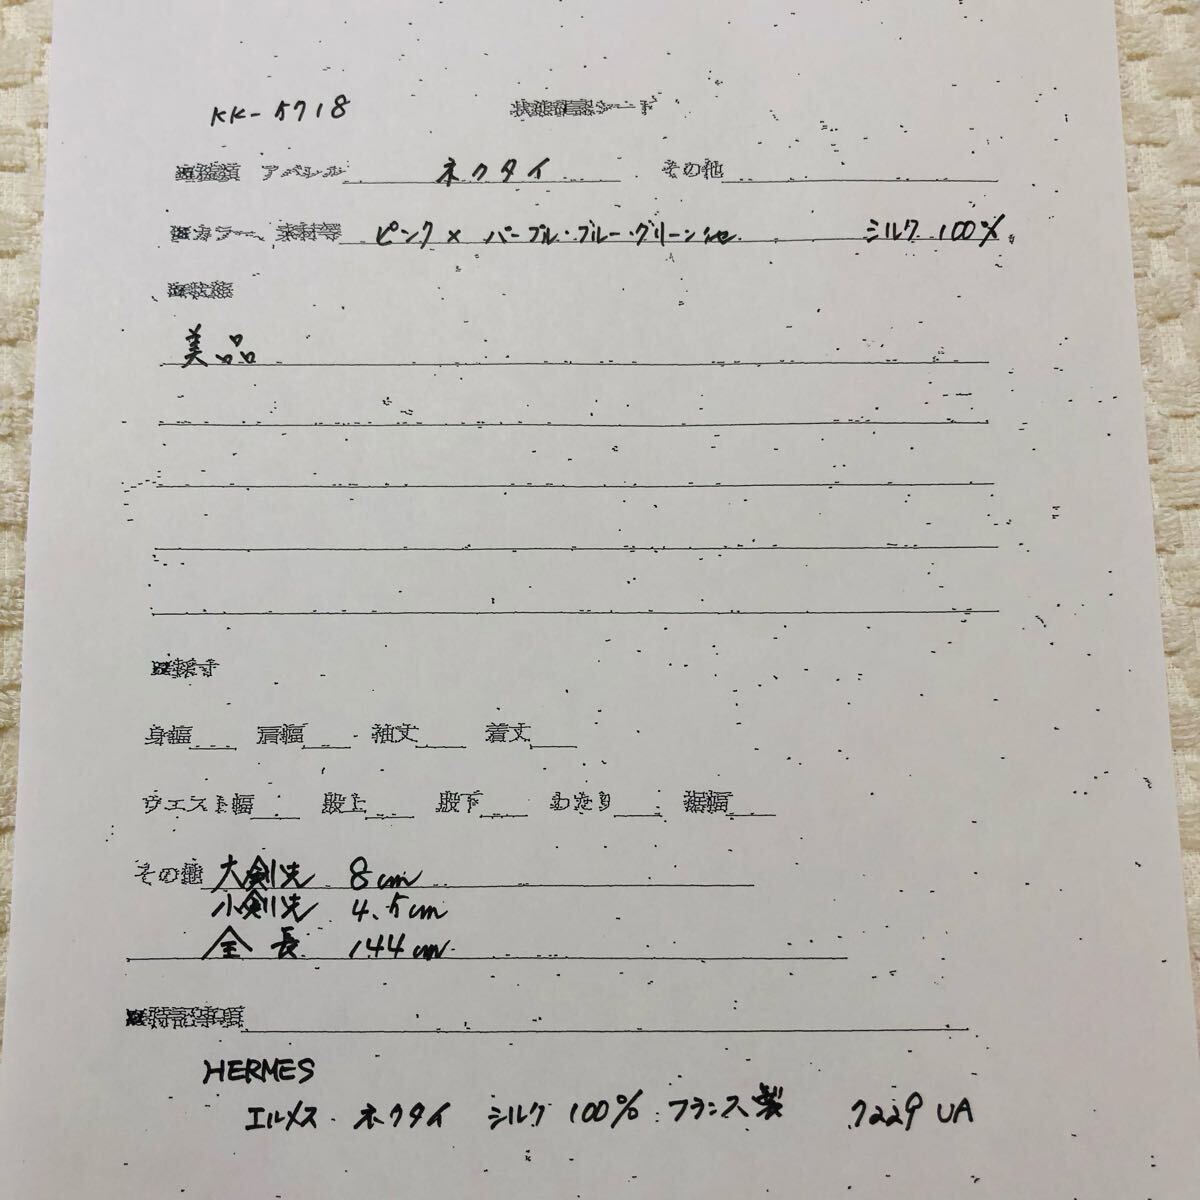 KK-5718 状態確認シート
■種類 アパレル ネクタイ その他
■カラー、素材等 ピンク× パープル・ブルー・グリーン シルク 100%
■状態
美品
■採寸
身幅 肩幅 袖丈 着丈
ウエスト幅 股上 股下 わたり 裾幅
その他 大剣先 8cm
小剣先 4.5cm
全長 144cm
■特記事項
HERMES
エルメス ネクタイ シルク 100% フランス製 7229 UA